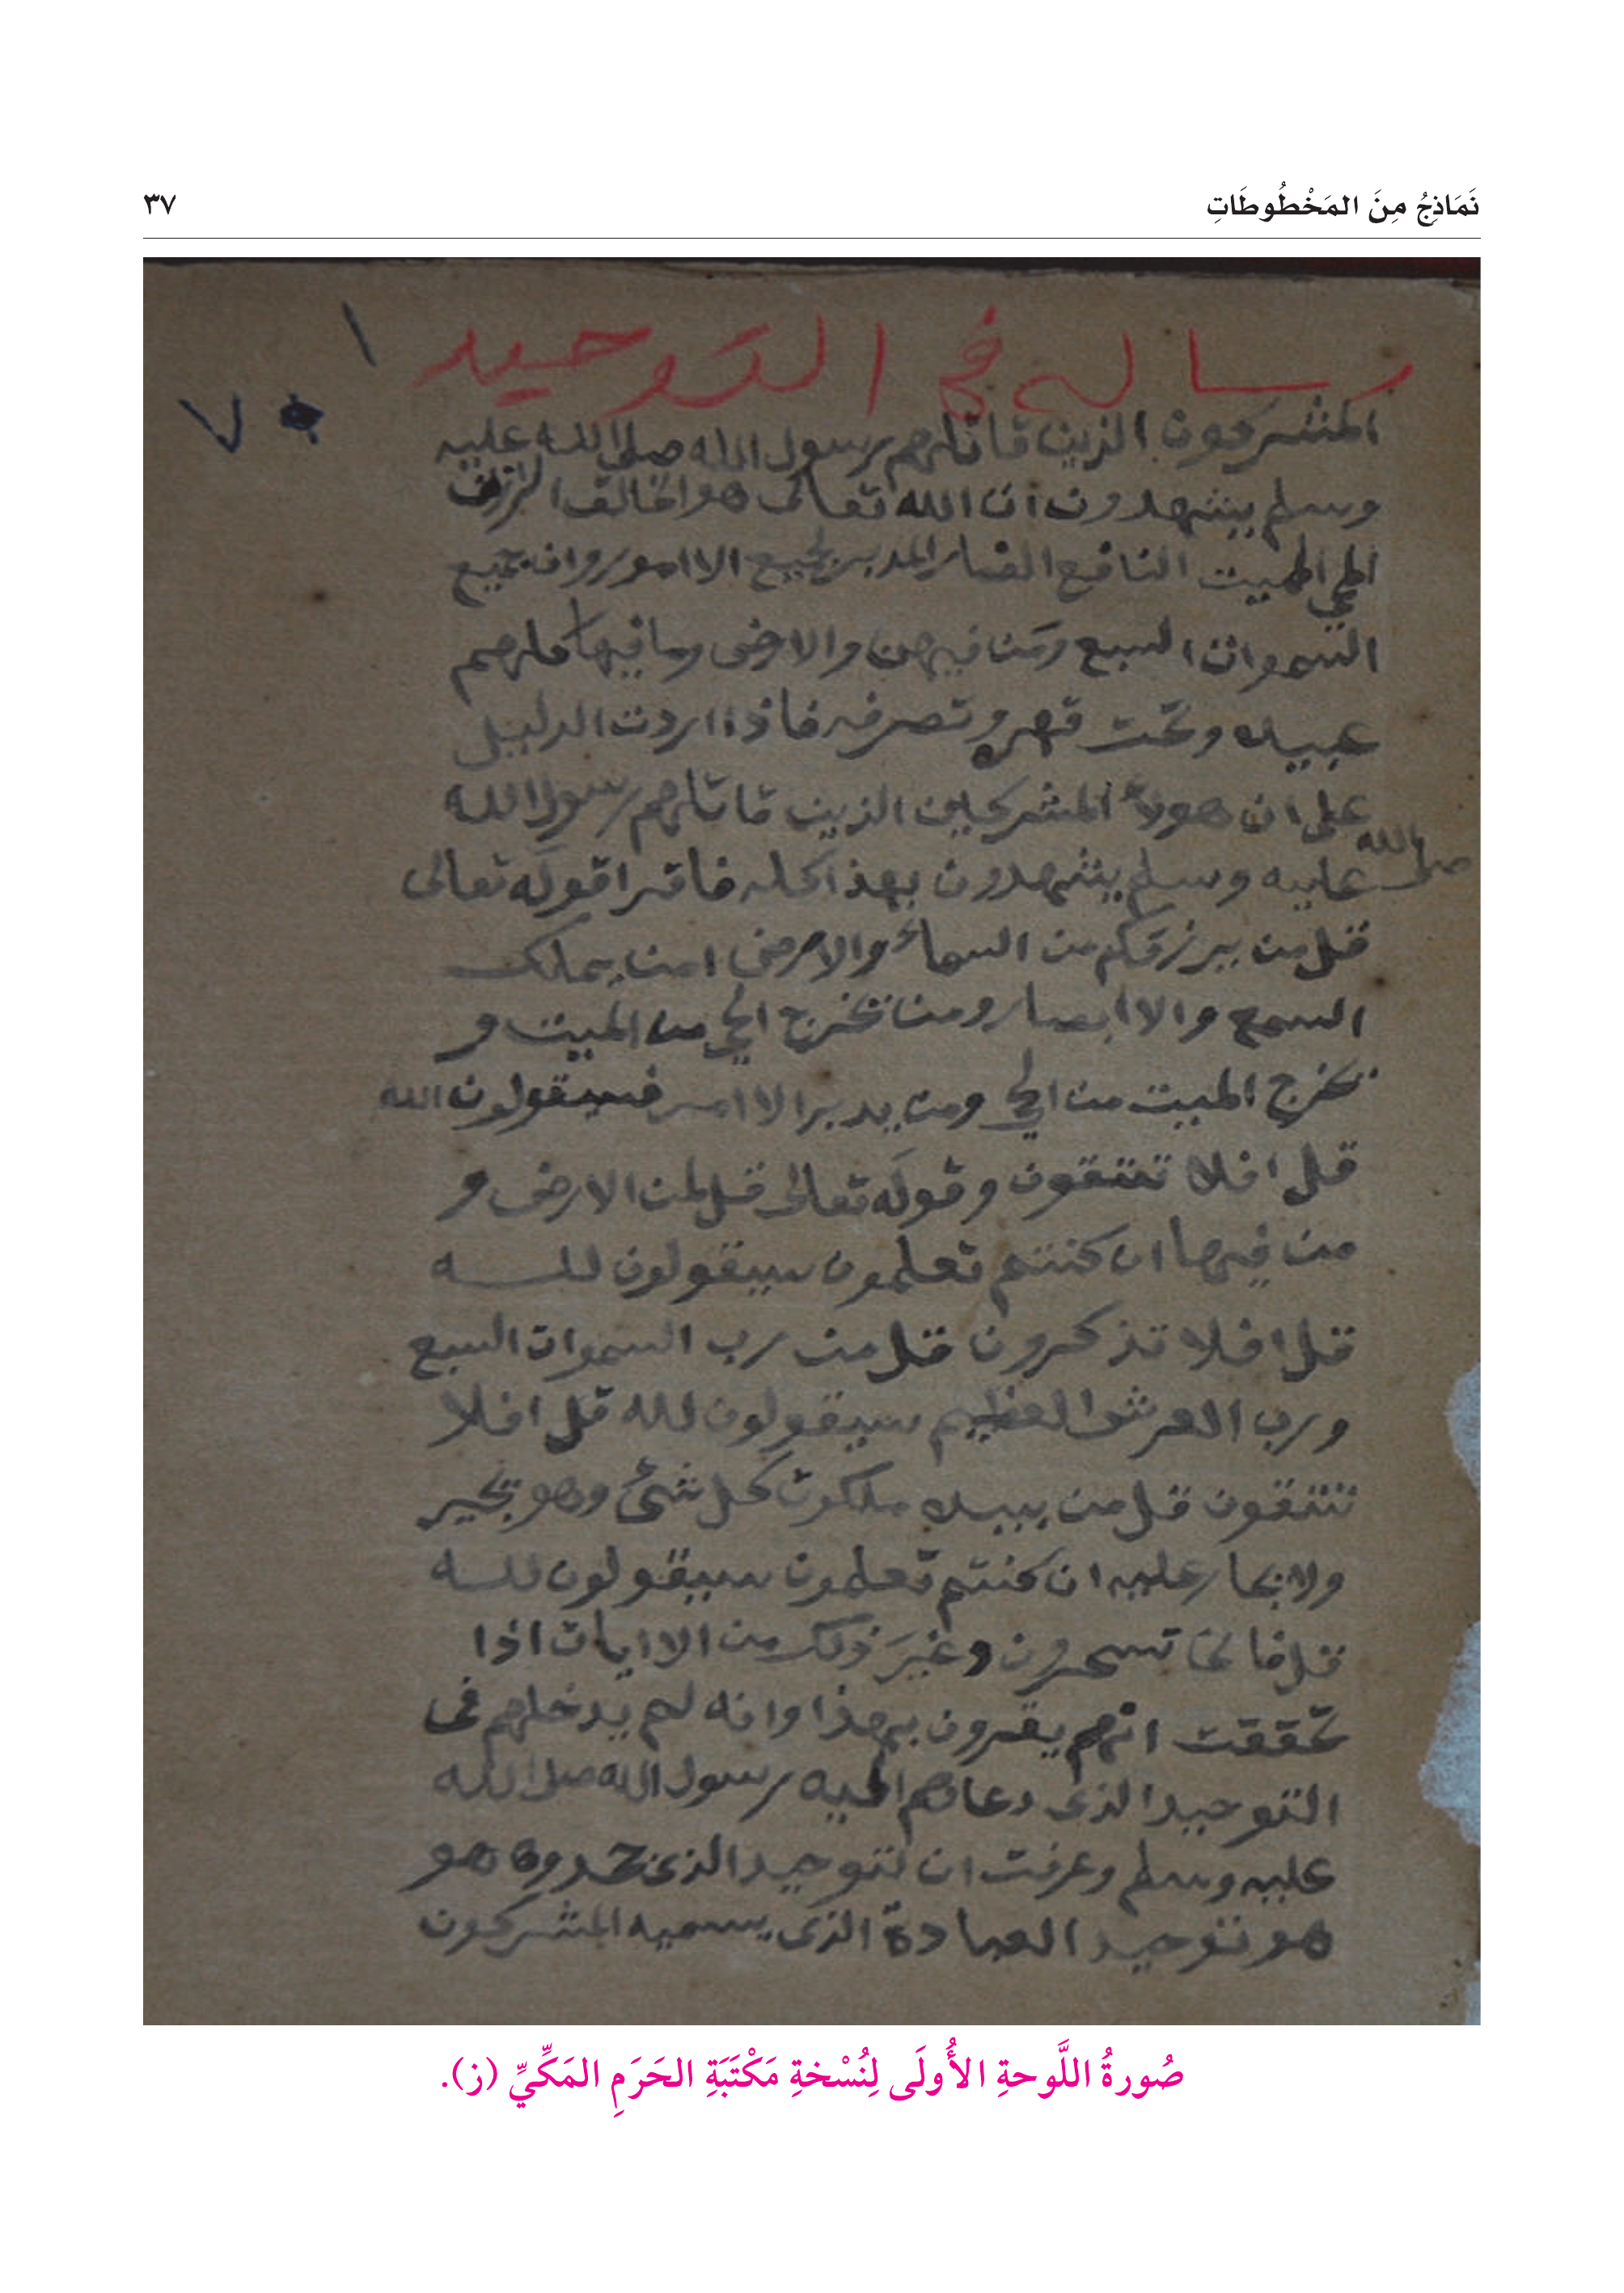 نَمَاذِجُ مِنَ المَخْطُوطَاتِ
٣٧
رساله في التوحيد
١
٧
المشركون الذين قاتلهم رسول الله صلى الله عليه
وسلم يشهدون ان الله تعالى هو الخالق الرازق
المحي المميت النافع الضار المدبر لجميع الاامور وان جميع
السموات السبع ومن فيهن والارض وما فيها كلهم
عبيده وتحت قهره وتصرفه فاذا اردت الدليل
على ان هولاء المشركين الذين قاتلهم رسول الله
صلى الله عليه وسلم يشهدون بهذا كله فاقرا قوله تعالى
قل من يرزقكم من السماء والارض امن يملك
السمع والاابصار ومن يخرج الحي من الميت و
يخرج الميت من الحي ومن يدبر الاامر فسيقولون الله
قل افلا تتقون وقوله تعالى قل لمن الارض و
من فيها ان كنتم تعلمون سيقولون لله
قل افلا تذكرون قل من رب السموات السبع
ورب العرش العظيم سيقولون لله قل افلا
تتقون قل من بيده ملكوت كل شئ وهو يجير
ولا يجار عليه ان كنتم تعلمون سيقولون لله
قل فانى تسحرون وغير ذلك من الاايات اذا
تحققت انهم يقرون بهذا وانه لم يدخلهم في
التوحيد الذى دعاهم اليه رسول الله صلى الله
عليه وسلم وعرفت ان لتوحيد الذى جحدوه هو
هو توحيد العبادة الذى يسميه المشركون
صُورةُ اللَّوحةِ الأُولَى لِنُسْخةِ مَكْتَبَةِ الحَرَمِ المَكِّيِّ (ز).